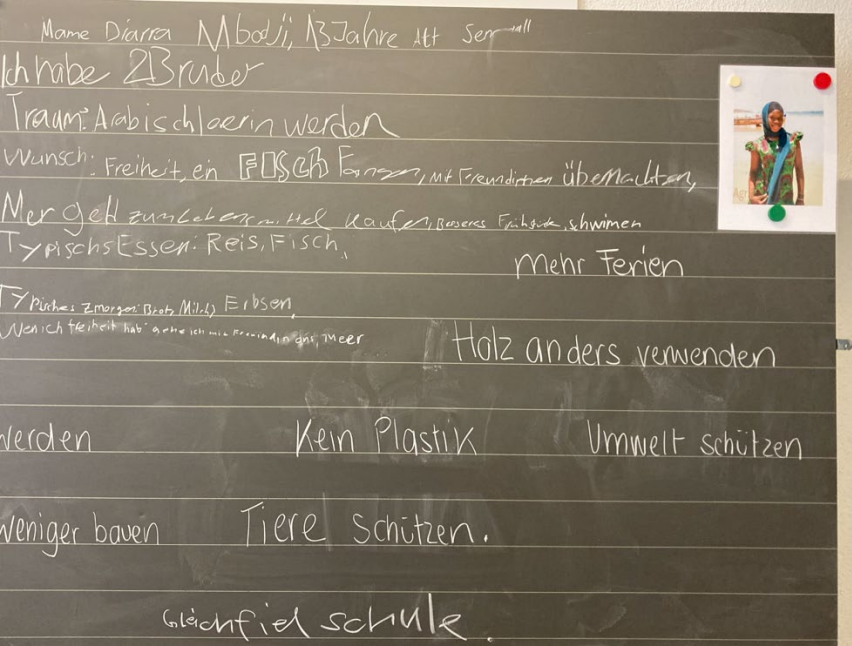 Mame Diarra Mbodji, 13 Jahre Alt Senegall
Ich habe 2 Bruder
Traum: Arabischlaerin werden
Wunsch: Freiheit, ein FISCH Fangen, mit Freundinnen übernachten,
Mer geld zum Lebensmittel kaufen, Besseres Frühstück, schwimen
Typischs Essen: Reis, Fisch,
mehr Ferien
Typisches Zmorgen: Brot, Milch, Erbsen,
Wen ich freiheit hab gehe ich mit ans Meer
Holz anders verwenden
werden Kein Plastik Umwelt schützen
weniger bauen Tiere schützen.
Gleichfiel schule.